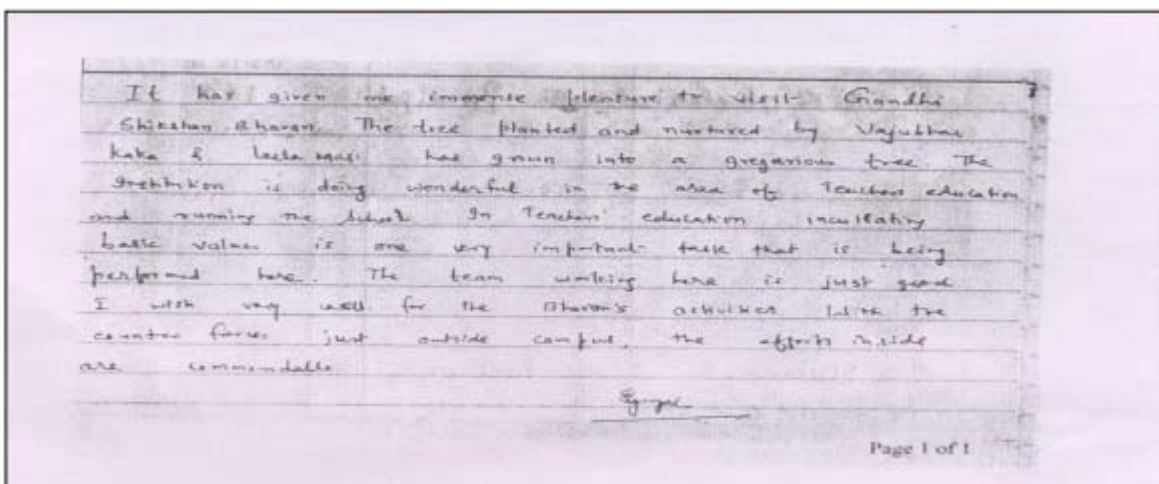 It has given me immense pleasure to visit Gandhi
Shikshan Bhavan. The tree planted and nurtured by Vajubhai
kaka & has grown into a gregarious tree. The
Institution is doing wonderful in the area of Teachers education
and running the School. In Teachers' education incultating
basic values is one very important task that is being
performed here. The team working here is just good
I wish very well for the Bhavan's activities With the
counter forces just outside campus, the efforts inside
are commendable.
Page 1 of 1